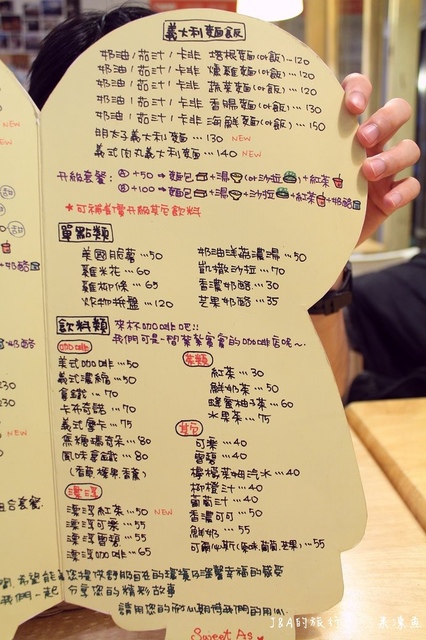 義大利麵飯
奶油/茄汁/卡非 培根麵(or飯)…120
奶油/茄汁/卡非 燻雞麵(or飯)…120
奶油/茄汁/卡非 蔬菜麵(or飯)…120
奶油/茄汁/卡非 香腸麵(or飯)…130
奶油/茄汁/卡非 海鮮麵(or飯)…150
明太子義大利麵…130 NEW
義式肉丸義大利麵…140 NEW
升級套餐: A +50→麵包+湯(or沙拉)+紅茶
B +100→麵包+湯+沙拉+紅茶+奶酪
★可補差價升級其它飲料
單點類
美國脆薯…50
雞米花…60
雞柳條…65
炸物拼盤…120
奶油洋菇濃湯…50
凱撒沙拉…70
香濃奶酪…30
芒果奶酪…35
飲料類 來杯咖啡吧!!
我們可是一間紮紮實實的咖啡店呢~.
咖啡
美式咖啡…50
義式濃縮…50
拿鐵…70
卡布奇諾…70
義式摩卡…75
焦糖瑪奇朵…80
風味拿鐵…80
(香草.榛果.香蕉)
漂浮
漂浮紅茶…50 NEW
漂浮可樂…55
漂浮雪碧…55
漂浮咖啡…65
茶類
紅茶…30
鮮奶茶…50
蜂蜜柚子茶…60
水果茶…75
其它
可樂…40
雪碧…40
檸檬萊姆汽水…40
柳橙汁…40
葡萄汁…40
香濃可可…50
鮮奶…55
可爾必斯(原味.葡萄.芒果)…55
希望能為您提供舒服自在的環境&溫馨幸福的感受
我們一起分享您的精彩故事
請用您的耐心期待我們的用心.
Sweet As
奶酪
230
230
NEW
J&A的旅行